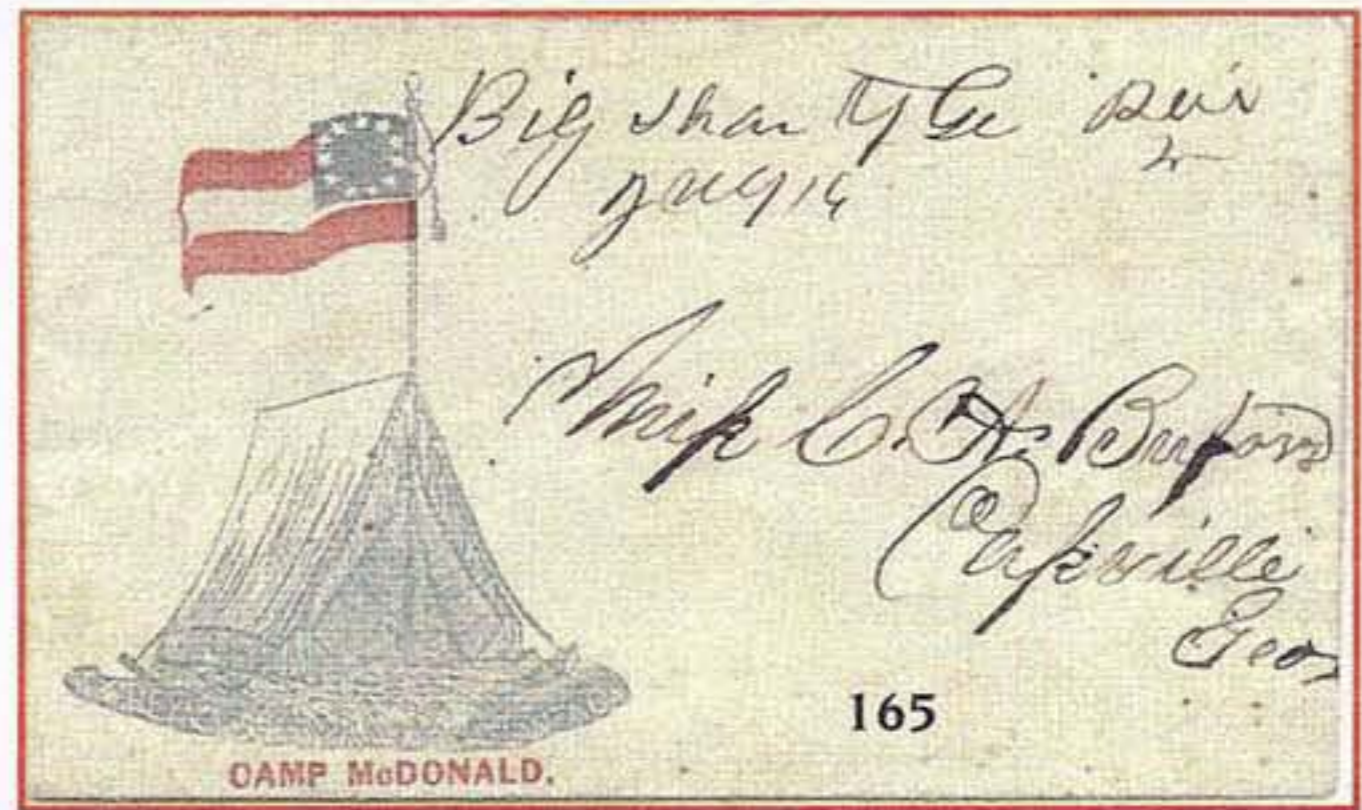 Big Shanty Ge Paid
July 14
Miss C. A. Buford
Cassville
Geo
165
CAMP McDONALD.